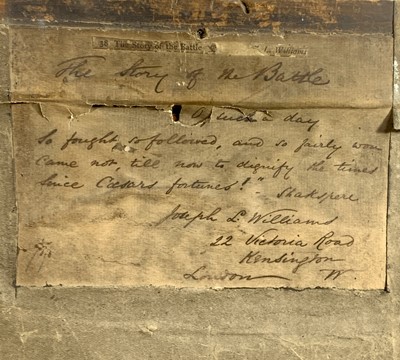 18 The Story of the Battle L. Williams
The Story of the Battle
Of such a day
So fought, so followed, and so fairly won
Came not, till now to dignify the times
Since Cæsars fortunes!" - Shakspere
Joseph L Williams
22 Victoria Road
Kensington
London W.